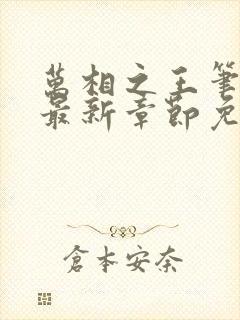 萬相之王筆
最新章節免
倉本安奈